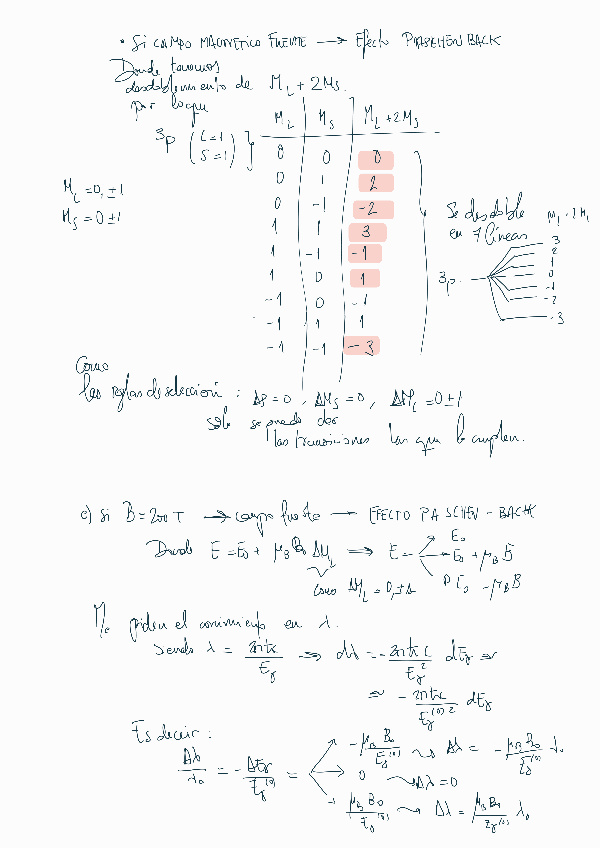 • Si CAMPO MAGNETICO FUERTE → Efecto PASCHEN BACK
Donde tenemos
desdoblamiento de M_L + 2M_S.
por lo que
M_L | M_S | M_L + 2M_S
³P (L=1 S=1) }
0 | 0 | 0
0 | 1 | 2
0 | -1 | -2
1 | 1 | 3
1 | -1 | -1
1 | 0 | 1
-1 | 0 | -1
-1 | 1 | 1
-1 | -1 | -3
M_L = 0, ±1
M_S = 0 ±1
Se desdobla
en 7 líneas
M_L + 2M_S
3
2
1
0
-1
-2
-3
3p
Como
las reglas de selección : ΔS = 0, ΔM_S = 0, ΔM_L = 0 ±1
solo se puede dar
las transiciones las que lo cumplen.
c) Si B = 200 T → campo fuerte → EFECTO PASCHEN - BACK
Donde E = E_0 + μ_B B_0 ΔM_L ⟹ E
E_0
E_0 + μ_B B
E_0 - μ_B B
como ΔM_L = 0, ±1
Me piden el corrimiento en λ.
Siendo λ = 2πħc / E_γ ⟹ dλ = - 2πħc / E_γ² dE_γ ≃
≃ - 2πħc / E_γ^(0)2 dE_γ
Es decir :
Δλ / λ_0 = - ΔE_γ / E_γ^(0) =
- μ_B B_0 / E_γ^(0) ⟿ Δλ = - μ_B B_0 / E_γ^(0) λ_0
0 ⟿ Δλ = 0
μ_B B_0 / E_γ^(0) ⟿ Δλ = μ_B B_0 / E_γ^(0) λ_0